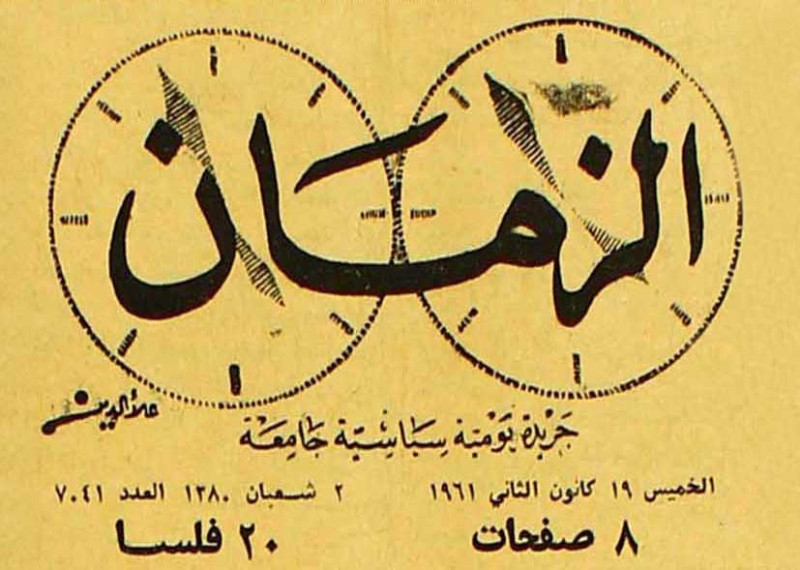 الزمان
علاء الدين
جَريدة يَوميّة سيَاسيّة جَامعَة
الخميس ١٩ كانون الثاني ١٩٦١ ٢ شعبان ١٣٨٠ العدد ٧٠٤١
٨ صفحات ٢٠ فلسا